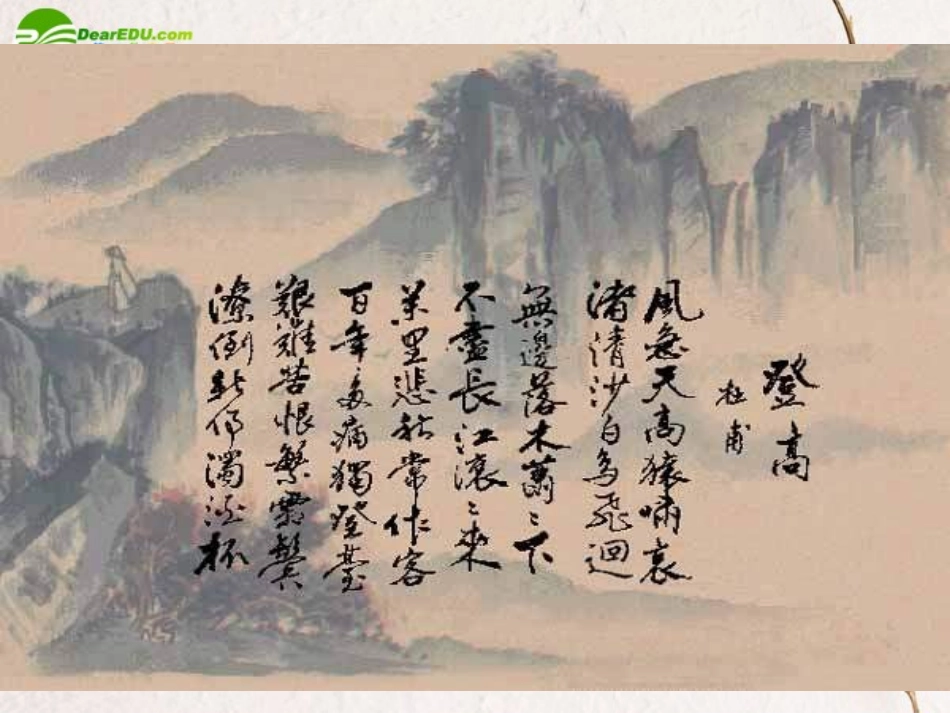 DearEDU.com
登高
杜甫
風急天高猿嘯哀
渚清沙白鳥飛迴
無邊落木蕭〻下
不盡長江滾〻來
萬里悲秋常作客
百年多病獨登臺
艱難苦恨繁霜鬢
潦倒新停濁酒杯